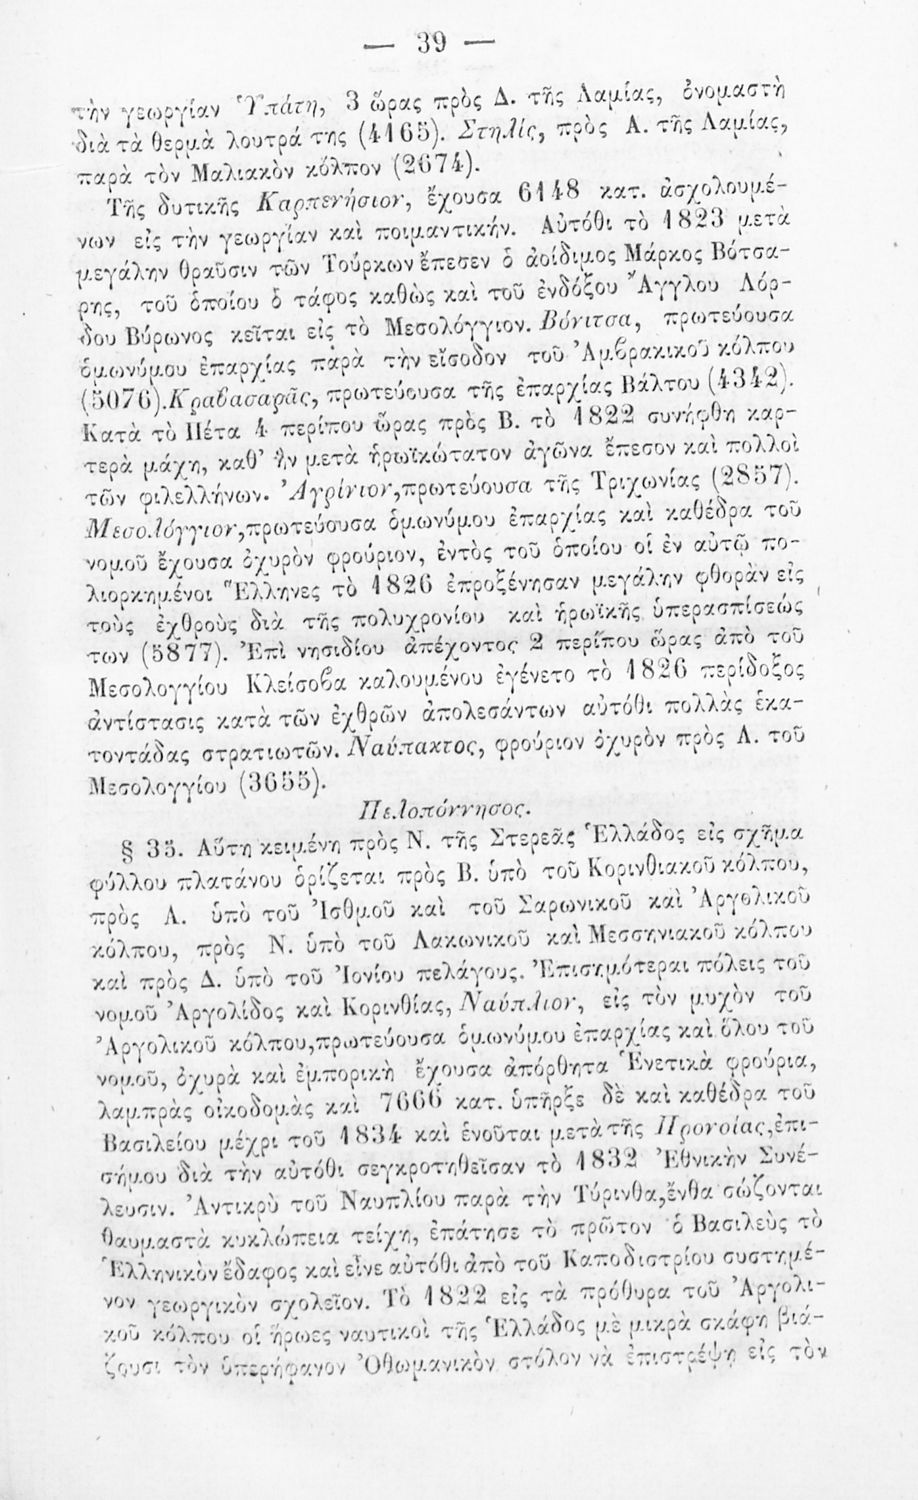 — 39 —
τὴν γεωργίαν Ὑπάτη, 3 ὥρας πρὸς Δ. τῆς Λαμίας, ὀνομαστὴ
διὰ τὰ θερμὰ λουτρά της (4165). Στηλίς, πρὸς Α. τῆς Λαμίας,
παρὰ τὸν Μαλιακὸν κόλπον (2674).
Τῆς δυτικῆς Καρπενήσιον, ἔχουσα 6148 κατ. ἀσχολουμέ-
νων εἰς τὴν γεωργίαν καὶ ποιμαντικήν. Αὐτόθι τὸ 1823 μετὰ
μεγάλην θραῦσιν τῶν Τούρκων ἔπεσεν ὁ ἀοίδιμος Μάρκος Βότσα-
ρης, τοῦ ὁποίου ὁ τάφος καθὼς καὶ τοῦ ἐνδόξου Ἄγγλου Λόρ-
δου Βύρωνος κεῖται εἰς τὸ Μεσολόγγιον. Βόνιτσα, πρωτεύουσα
ὁμωνύμου ἐπαρχίας παρὰ τὴν εἴσοδον τοῦ Ἀμβρακικοῦ κόλπου
(5076). Κραβασαρᾶς, πρωτεύουσα τῆς ἐπαρχίας Βάλτου (4342).
Κατὰ τὸ Πέτα 4 περίπου ὥρας πρὸς Β. τὸ 1822 συνήφθη καρ-
τερὰ μάχη, καθ’ ἣν μετὰ ἡρωϊκώτατον ἀγῶνα ἔπεσον καὶ πολλοὶ
τῶν φιλελλήνων. Ἀγρίνιον, πρωτεύουσα τῆς Τριχωνίας (2857).
Μεσολόγγιον, πρωτεύουσα ὁμωνύμου ἐπαρχίας καὶ καθέδρα τοῦ
νομοῦ ἔχουσα ὀχυρὸν φρούριον, ἐντὸς τοῦ ὁποίου οἱ ἐν αὐτῷ πο-
λιορκημένοι Ἕλληνες τὸ 1826 ἐπροξένησαν μεγάλην φθορὰν εἰς
τοὺς ἐχθροὺς διὰ τῆς πολυχρονίου καὶ ἡρωϊκῆς ὑπερασπίσεώς
των (5877). Ἐπὶ νησιδίου ἀπέχοντος 2 περίπου ὥρας ἀπὸ τοῦ
Μεσολογγίου Κλείσοβα καλουμένου ἐγένετο τὸ 1826 περίδοξος
ἀντίστασις κατὰ τῶν ἐχθρῶν ἀπολεσάντων αὐτόθι πολλὰς ἑκα-
τοντάδας στρατιωτῶν. Ναύπακτος, φρούριον ὀχυρὸν πρὸς Α. τοῦ
Μεσολογγίου (3655).
Πελοπόννησος.
§ 35. Αὕτη κειμένη πρὸς Ν. τῆς Στερεᾶς Ἑλλάδος εἰς σχῆμα
φύλλου πλατάνου ὁρίζεται πρὸς Β. ὑπὸ τοῦ Κορινθιακοῦ κόλπου,
πρὸς Α. ὑπὸ τοῦ Ἰσθμοῦ καὶ τοῦ Σαρωνικοῦ καὶ Ἀργολικοῦ
κόλπου, πρὸς Ν. ὑπὸ τοῦ Λακωνικοῦ καὶ Μεσσηνιακοῦ κόλπου
καὶ πρὸς Δ. ὑπὸ τοῦ Ἰονίου πελάγους. Ἐπισημότεραι πόλεις τοῦ
νομοῦ Ἀργολίδος καὶ Κορινθίας, Ναύπλιον, εἰς τὸν μυχὸν τοῦ
Ἀργολικοῦ κόλπου, πρωτεύουσα ὁμωνύμου ἐπαρχίας καὶ ὅλου τοῦ
νομοῦ, ὀχυρὰ καὶ ἐμπορικὴ ἔχουσα ἀπόρθητα Ἑνετικὰ φρούρια,
λαμπρὰς οἰκοδομὰς καὶ 7666 κατ. ὑπῆρξε δὲ καὶ καθέδρα τοῦ
Βασιλείου μέχρι τοῦ 1834 καὶ ἑνοῦται μετὰ τῆς Προνοίας, ἐπι-
σήμου διὰ τὴν αὐτόθι σεγκροτηθεῖσαν τὸ 1832 Ἐθνικὴν Συνέ-
λευσιν. Ἀντικρὺ τοῦ Ναυπλίου παρὰ τὴν Τύρινθα, ἔνθα σώζονται
θαυμαστὰ κυκλώπεια τείχη, ἐπάτησε τὸ πρῶτον ὁ Βασιλεὺς τὸ
Ἑλληνικὸν ἔδαφος καὶ εἶνε αὐτόθι ἀπὸ τοῦ Καποδιστρίου συστημέ-
νον γεωργικὸν σχολεῖον. Τὸ 1822 εἰς τὰ πρόθυρα τοῦ Ἀργολι-
κοῦ κόλπου οἱ ἥρωες ναυτικοὶ τῆς Ἑλλάδος μὲ μικρὰ σκάφη βιά-
ζουσι τὸν ὑπερήφανον Ὀθωμανικὸν στόλον νὰ ἐπιστρέψῃ εἰς τὸν